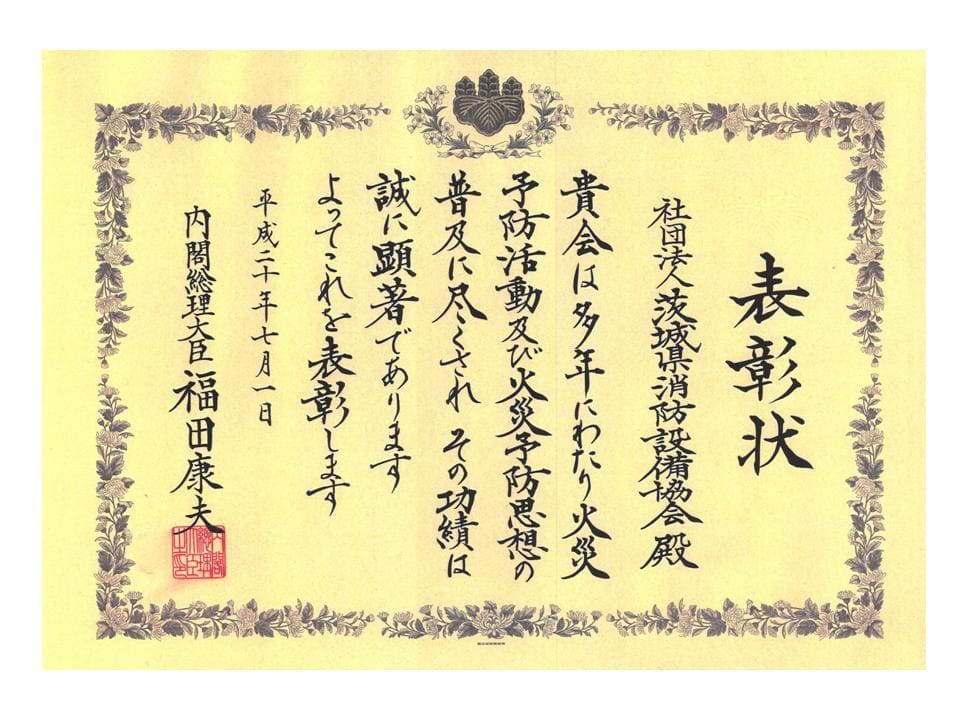 表彰状
社団法人茨城県消防設備協会殿
貴会は多年にわたり火災
予防活動及び火災予防思想の
普及に尽くされその功績は
誠に顕著であります
よってこれを表彰します
平成二十年七月一日
内閣総理大臣福田康夫